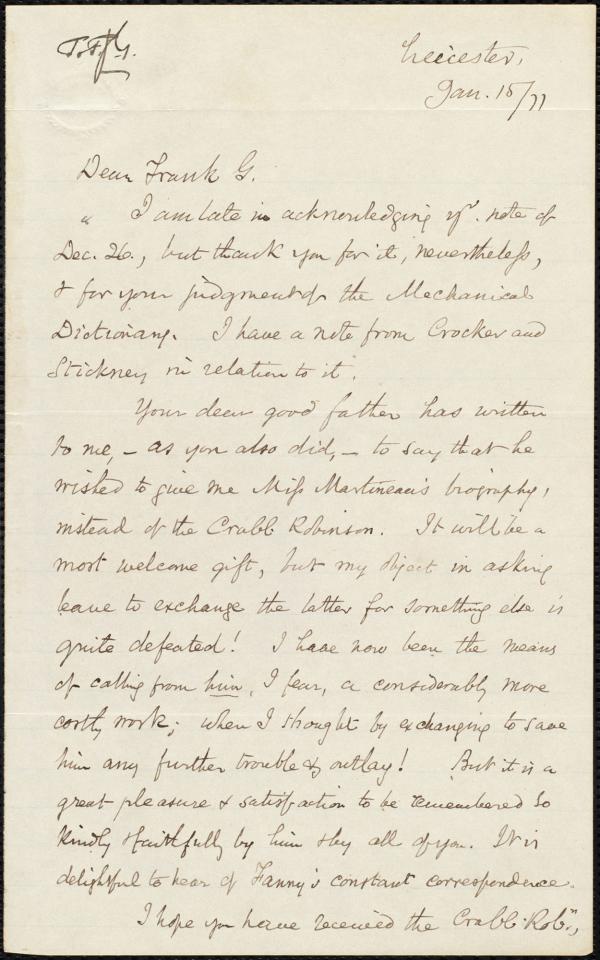 Leicester,
Jan. 15/77
Dear Frank G.
I am late in acknowledging yr. note of
Dec. 26., but thank you for it, nevertheless,
& for your judgment of the Mechanical
Dictionary. I have a note from Crocker and
Stickney in relation to it.
Your dear good father has written
to me, – as you also did, – to say that he
wished to give me Miss Martineau's biography,
instead of the Crabb Robinson. It will be a
most welcome gift, but my object in asking
leave to exchange the latter for something else is
quite defeated! I have now been the means
of calling from him, I fear, a considerably more
costly work; when I thought by exchanging to save
him any further trouble & outlay! But it is a
great pleasure & satisfaction to be remembered so
kindly & faithfully by him & by all of you. It is
delightful to hear of Fanny's constant correspondence.
I hope you have received the Crabb Robn.,